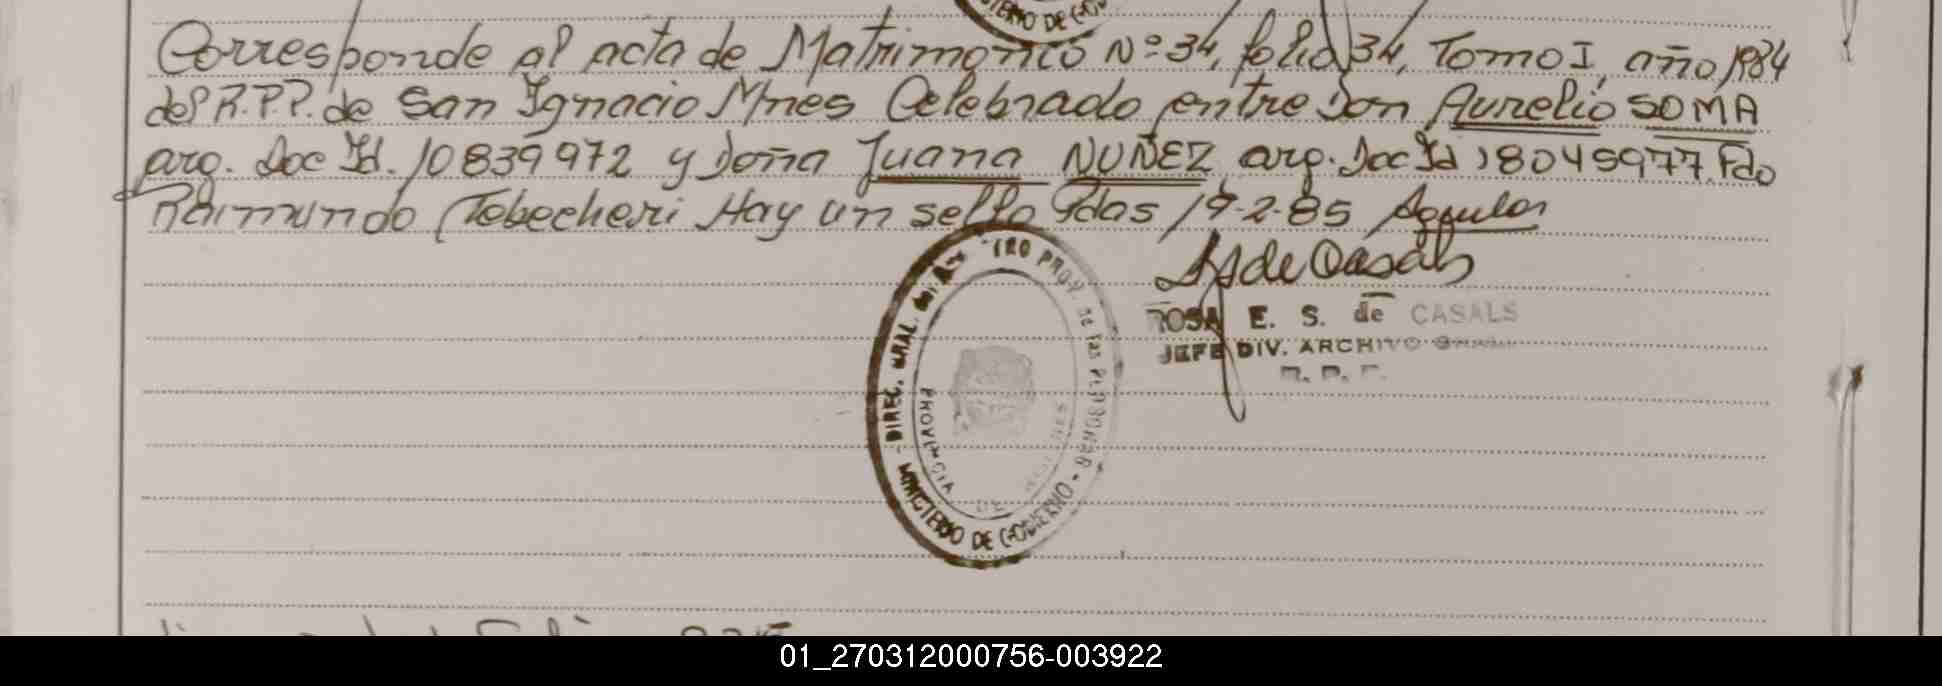 TERIO DE GO
Corresponde al acta de Matrimonio Nº 34, folio 34, Tomo I, año 1984
del R.P.P. de San Ignacio Mnes Celebrado entre Don Aurelio SOMA
arg. Doc Id. 10839972 y Doña Juana NUÑEZ arg. Doc Id 18045977 Fdo
Raimundo Tebecheri Hay un sello Pdas 19-2-85 Aguilar
DIREC. GRAL. TRO PROV. de las PERSONAS - MINISTERIO DE GOBIERNO -
PROVINCIA DE MISIONES
ROSA E. S. de CASALS
JEFE DIV. ARCHIVO GRAL
R. P. P.
01_270312000756-003922